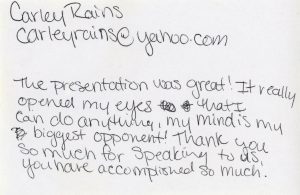 Carley Rains
carleyrains@yahoo.com
The presentation was great! It really
opened my eyes that I
can do anything, my mind is my
biggest opponent! Thank you
so much for speaking to us,
you have accomplished so much.